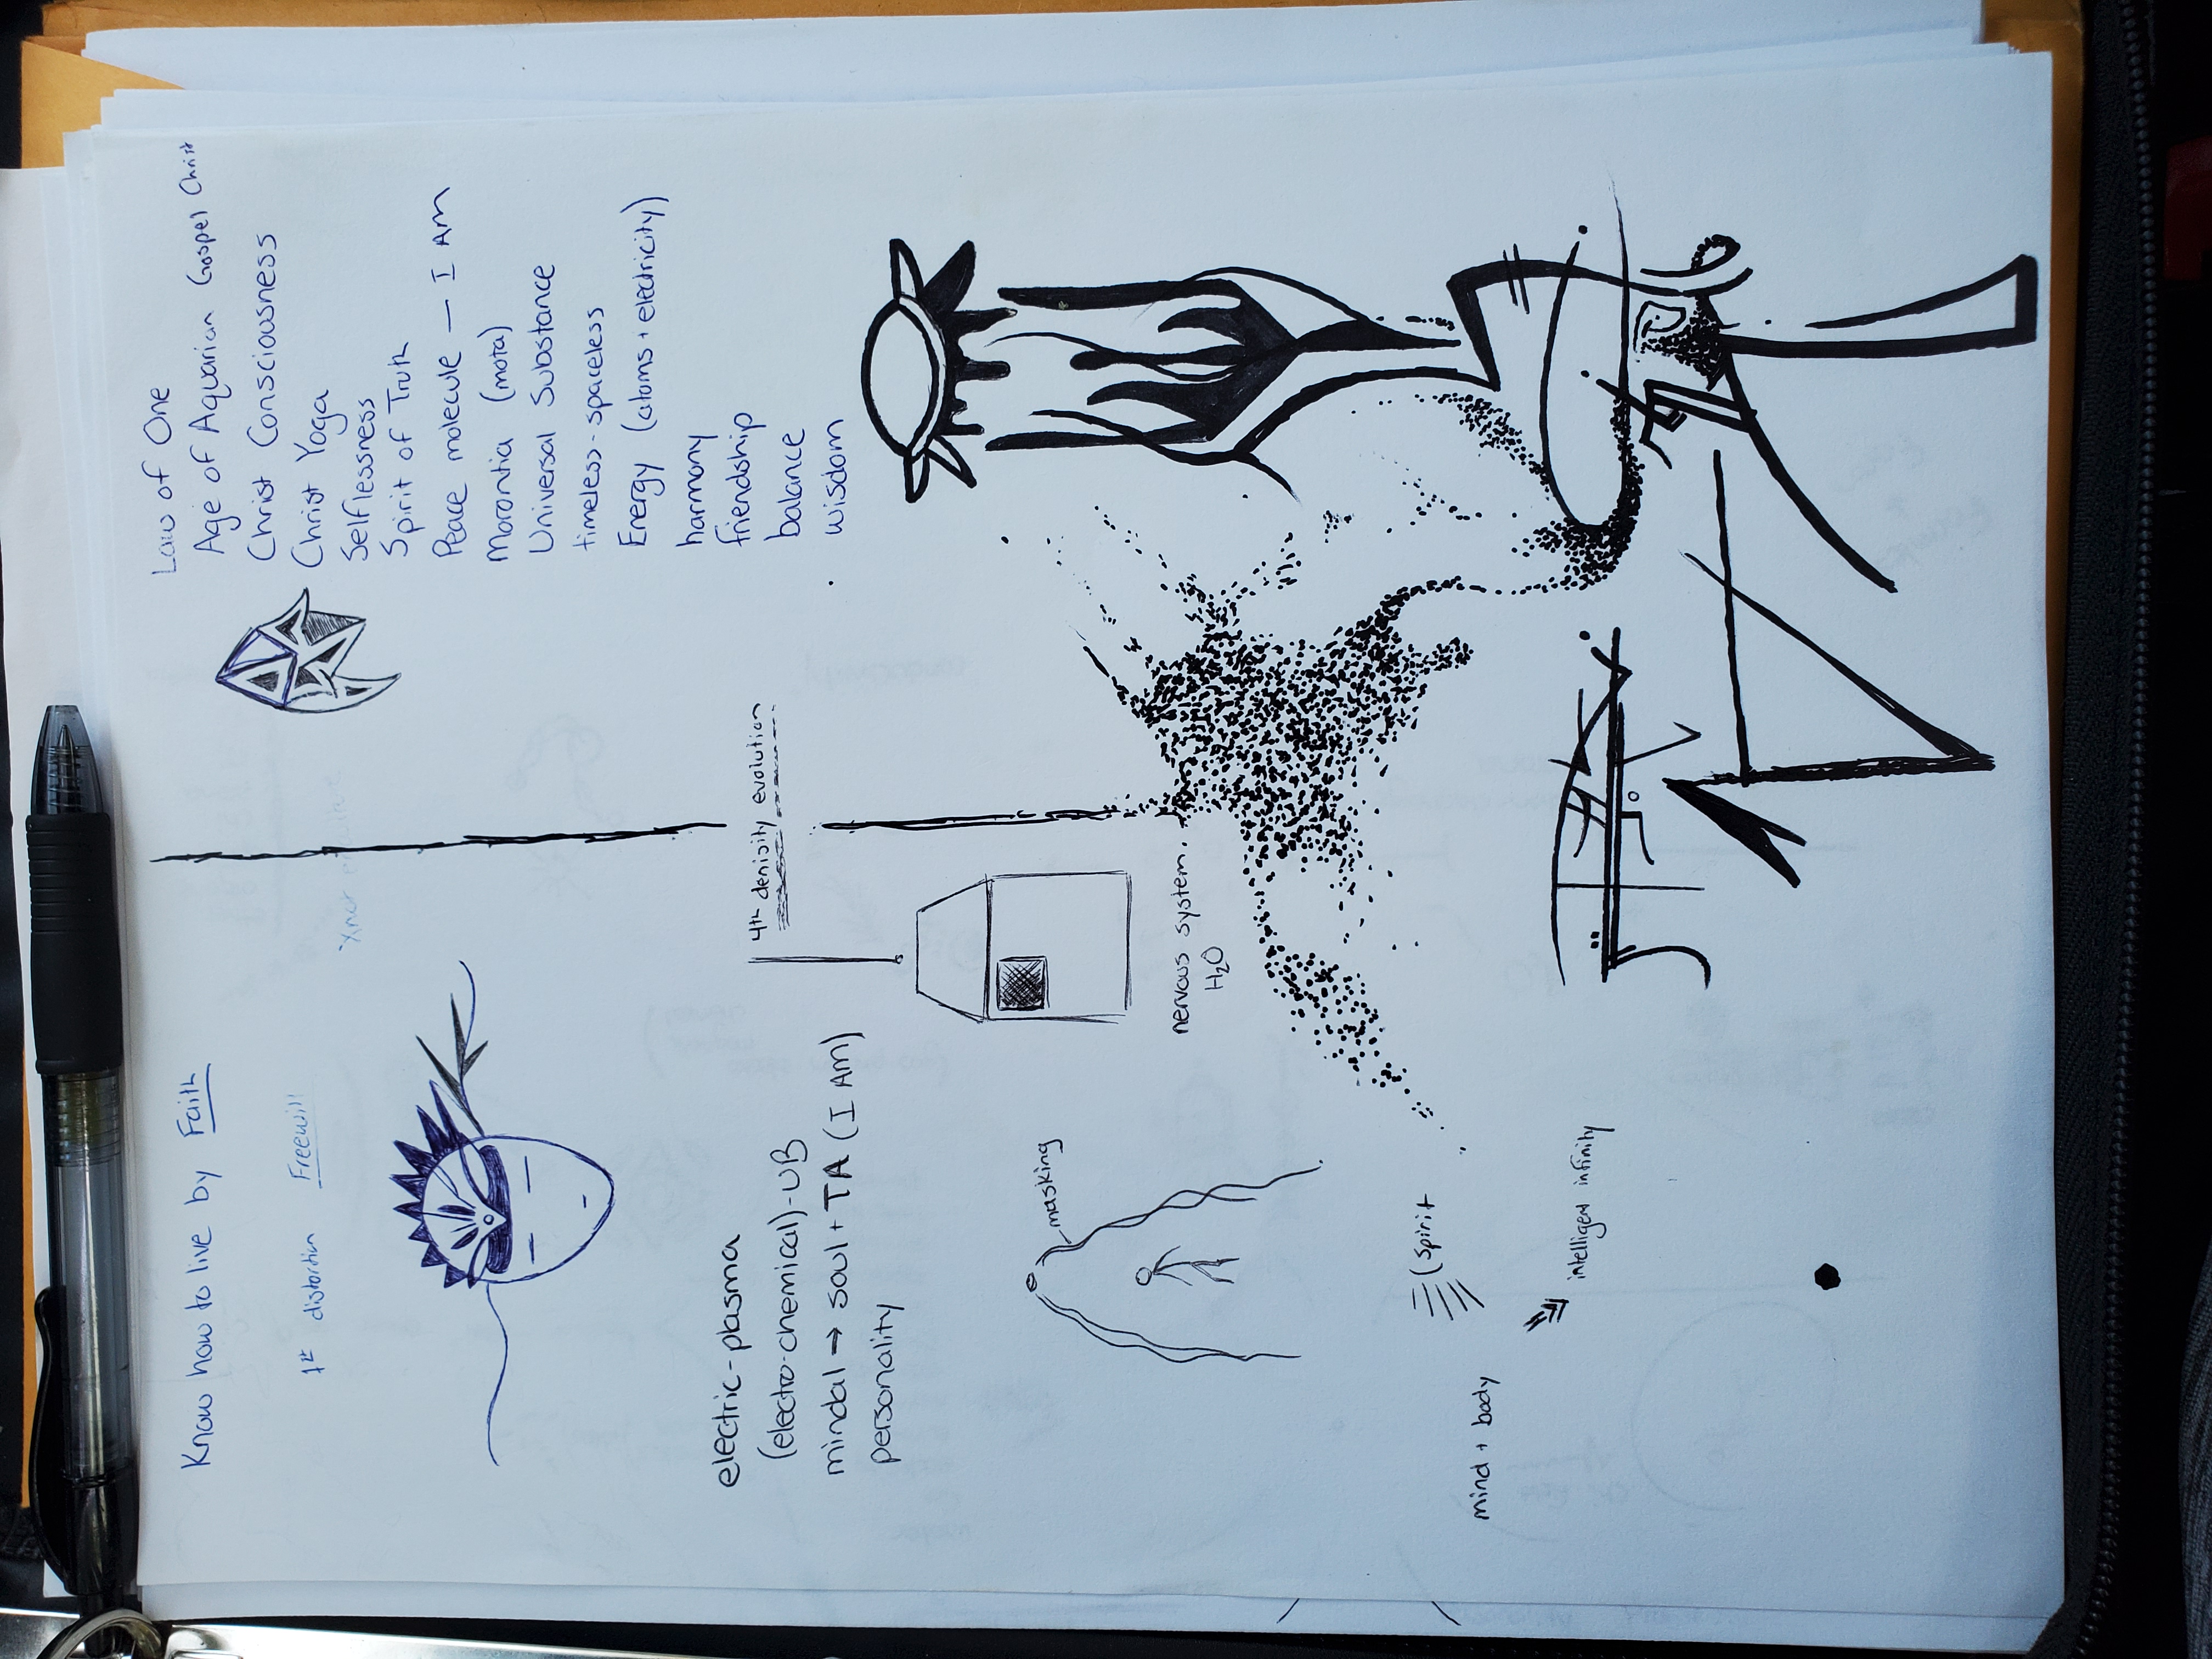 Know how to live by Faith
1st distortion Freewill
Law of One
Age of Aquarian Gospel Christ
Christ Consciousness
Christ Yoga
Selflessness
Spirit of Truth
Peace molecule — I AM
Morontia (mota)
Universal Substance
timeless - spaceless
Energy (atoms + electricity)
harmony
friendship
balance
wisdom
4th denisity evolution
electric-plasma
(electro-chemical)-UB
mindal → soul + TA (I AM)
personality
masking
nervous system.
H₂O
(spirit
mind + body
intelligent infinity